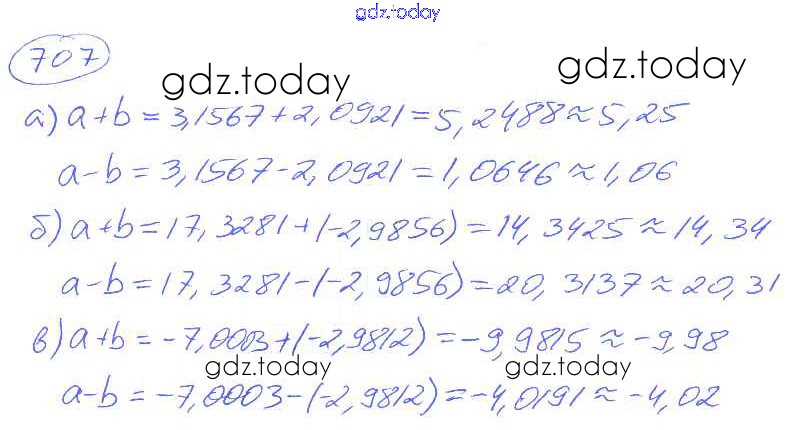 gdz.today
707
gdz.today gdz.today
а) a+b = 3,1567+2,0921 = 5,2488 ≈ 5,25
a-b = 3,1567-2,0921 = 1,0646 ≈ 1,06
б) a+b = 17,3281+(-2,9856) = 14,3425 ≈ 14,34
a-b = 17,3281-(-2,9856) = 20,3137 ≈ 20,31
в) a+b = -7,0003+(-2,9812) = -9,9815 ≈ -9,98
gdz.today gdz.today
a-b = -7,0003-(-2,9812) = -4,0191 ≈ -4,02